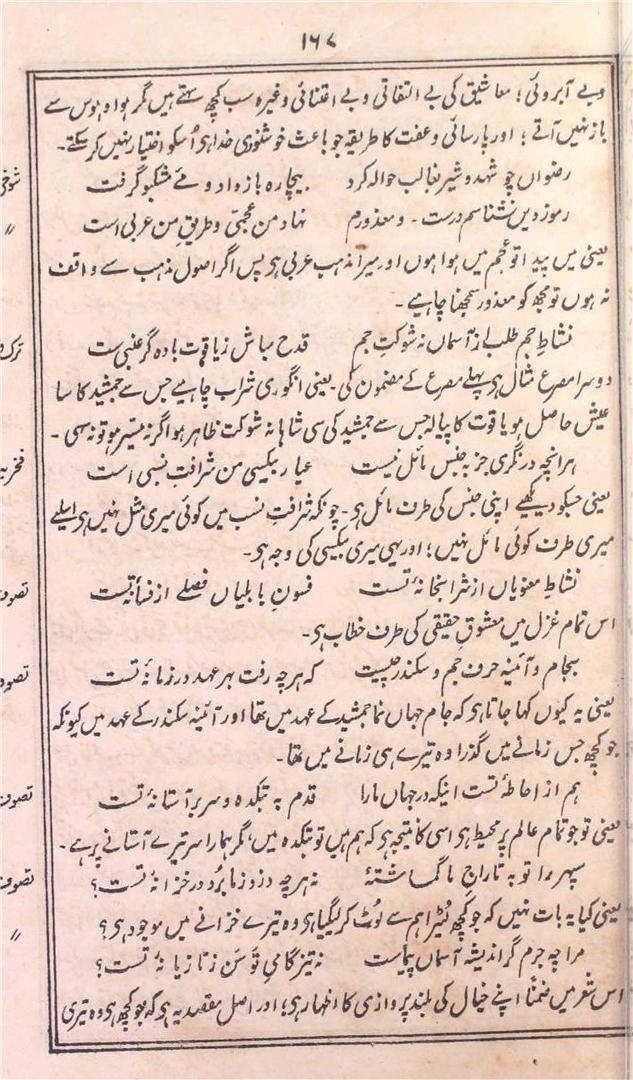 ۱۶۷
وبے آبروئی؛ معاشیق کی بے التفاتی و بے اعتنائی وغیرہ سب کچھ سہتے ہیں مگر ہوا و ہوس سے
باز نہیں آتے؛ اور پارسائی و عفت کا طریقہ جو باعث خوشنودی خدا ہو اُسکو اختیار نہیں کر سکتے۔
رضواں چو شہد و شیر بغالب حوالہ کرد بیچارہ باز داد و مے مشکبو گرفت
شوخی
رموز دیں نشناسم درست۔ و معذورم نہاد من عجمی و طریق من عربی است
〃
یعنی میں پیدا تو عجم میں ہوا ہوں اور میرا مذہب عربی ہی پس اگر اصول مذہب سے واقف
نہ ہوں تو مجھ کو معذور سمجھنا چاہیے۔
نشاطِ جم طلب از آسماں نہ شوکتِ جم قدح مباش ز یاقوت بادہ گر عنبی ست
ترک
دوسرا مصرع مثال ہی پہلے مصرع کے مضمون کی یعنی انگوری شراب چاہیے جس سے جمشید کا سا
عیش حاصل ہو یاقوت کا پیالہ جس سے جمشید کی سی شاہانہ شوکت ظاہر ہو اگر نہ میسر ہو تو نہ سہی۔
ہر انچہ در نگری جز بہ جنس مائل نیست عیار بیکسی من شرافت نسبی است
فخریہ
یعنی جسکو دیکھیے اپنی جنس کی طرف مائل ہی۔ چونکہ شرافت نسب میں کوئی میری مثل نہیں ہی اسلیے
میری طرف کوئی مائل نہیں؛ اور یہی میری بیکسی کی وجہ ہی۔
نشاطِ معنویاں از شرابخانۂ تست فسونِ بابلیاں فصلے از فسانۂ تست
تصوف
اس تمام غزل میں معشوقِ حقیقی کی طرف خطاب ہی۔
بجام و آئینہ حرف جم و سکندر چیست کہ ہر چہ رفت بہر عہد در زمانۂ تست
تصوف
یعنی یہ کیوں کہا جاتا ہی کہ جام جہاں نما جمشید کے عہد میں تھا اور آئینہ سکندر کے عہد میں کیونکہ
جو کچھ جس زمانے میں گذرا وہ تیرے ہی زمانے میں تھا۔
ہم از احاطۂ تست اینکہ در جہاں مارا قدم بہ بتکدہ و سر بر آستانۂ تست
تصوف
یعنی تو جو تمام عالم پر محیط ہی اسی کا نتیجہ ہی کہ ہم ہیں تو بتکدہ میں، مگر ہمارا سر تیرے آستانے پر ہے۔
سپہر را تو بہ تاراج ما گماشتۂ نہ ہر چہ دزد ز ما بُرد در خزانۂ تست؟
تصوف
یعنی کیا یہ بات نہیں کہ جو کچھ لٹیرا ہم سے لُوٹ کر لیگیا ہی وہ تیرے خزانے میں موجود ہی؟
مرا چہ جرم گر اندیشہ آسماں پیماست نہ تیز گامیِ توسَن ز تازیانۂ تست؟
〃
اس شعر میں ضمناً اپنے خیال کی بلند پروازی کا اظہار ہی؛ اور اصل مقصد یہ ہی کہ جو کچھ ہی وہ تیری